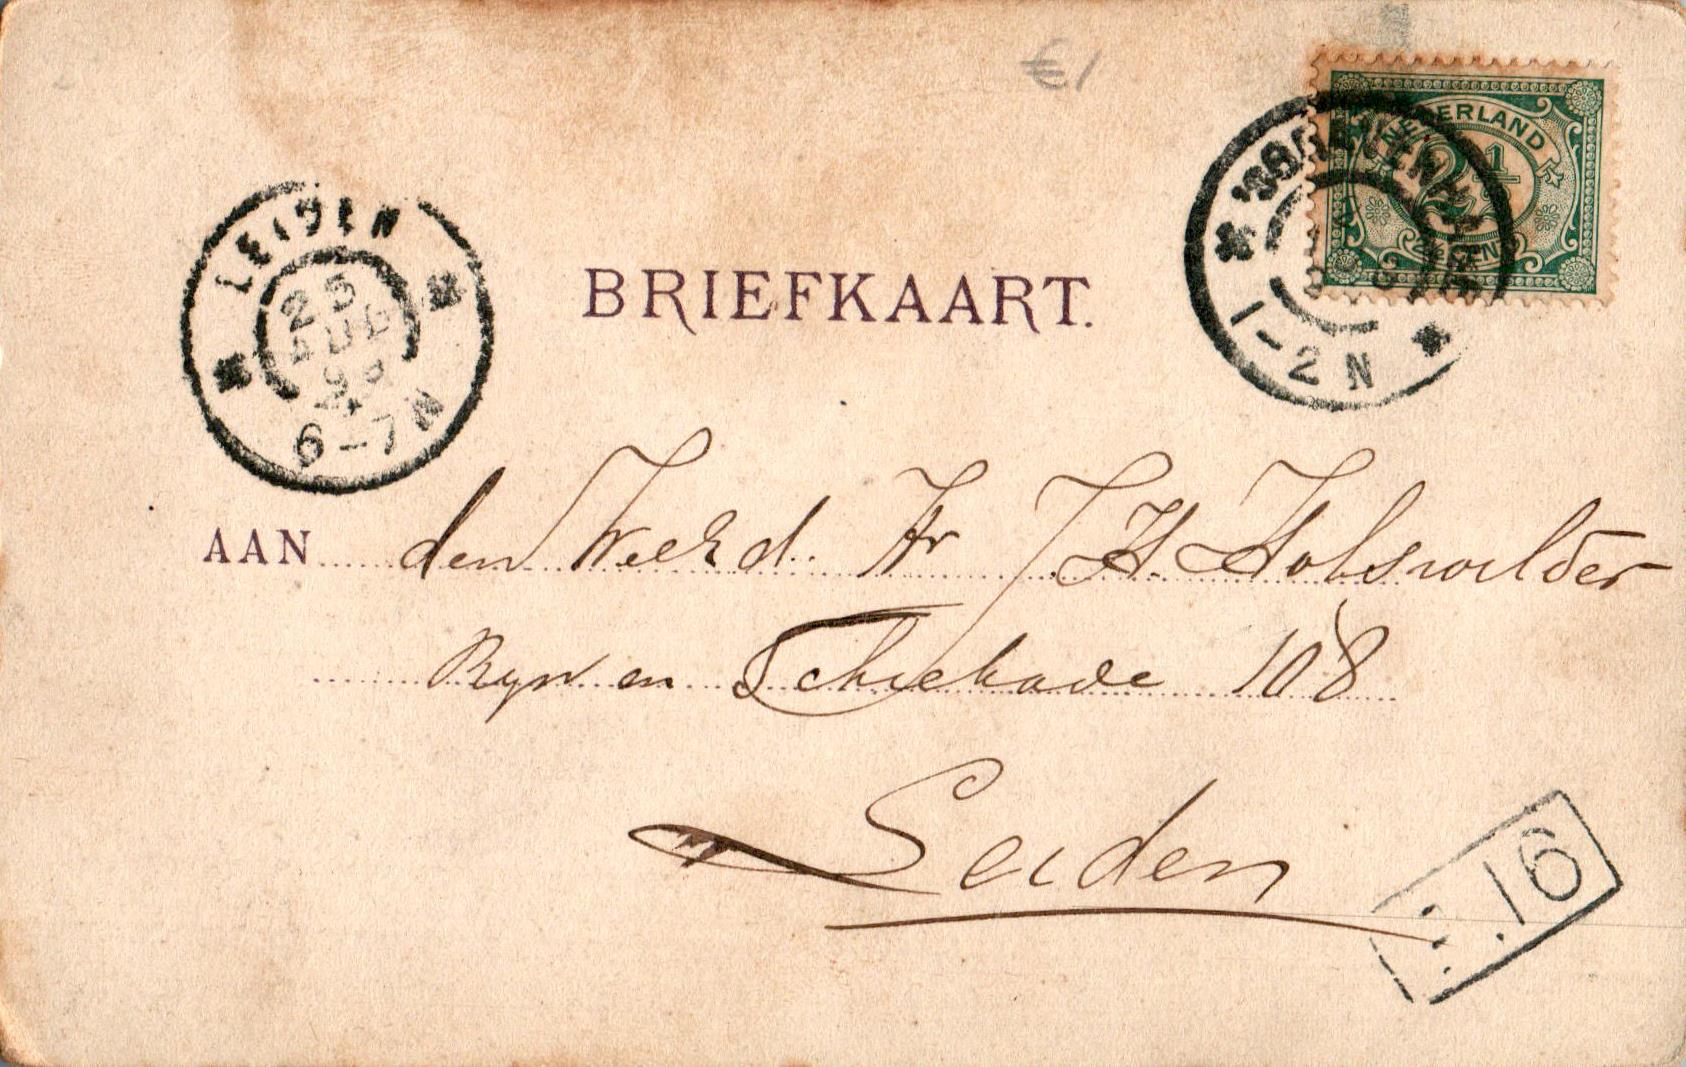 €1
NEDERLAND
2½
CENT
'S GRAVENH
1-2N
LEIDEN
23
AUG
6-7N
BRIEFKAART.
AAN den Weled. Hr J H Holswilder
Ryn en Schiekade 108
Leiden
.16